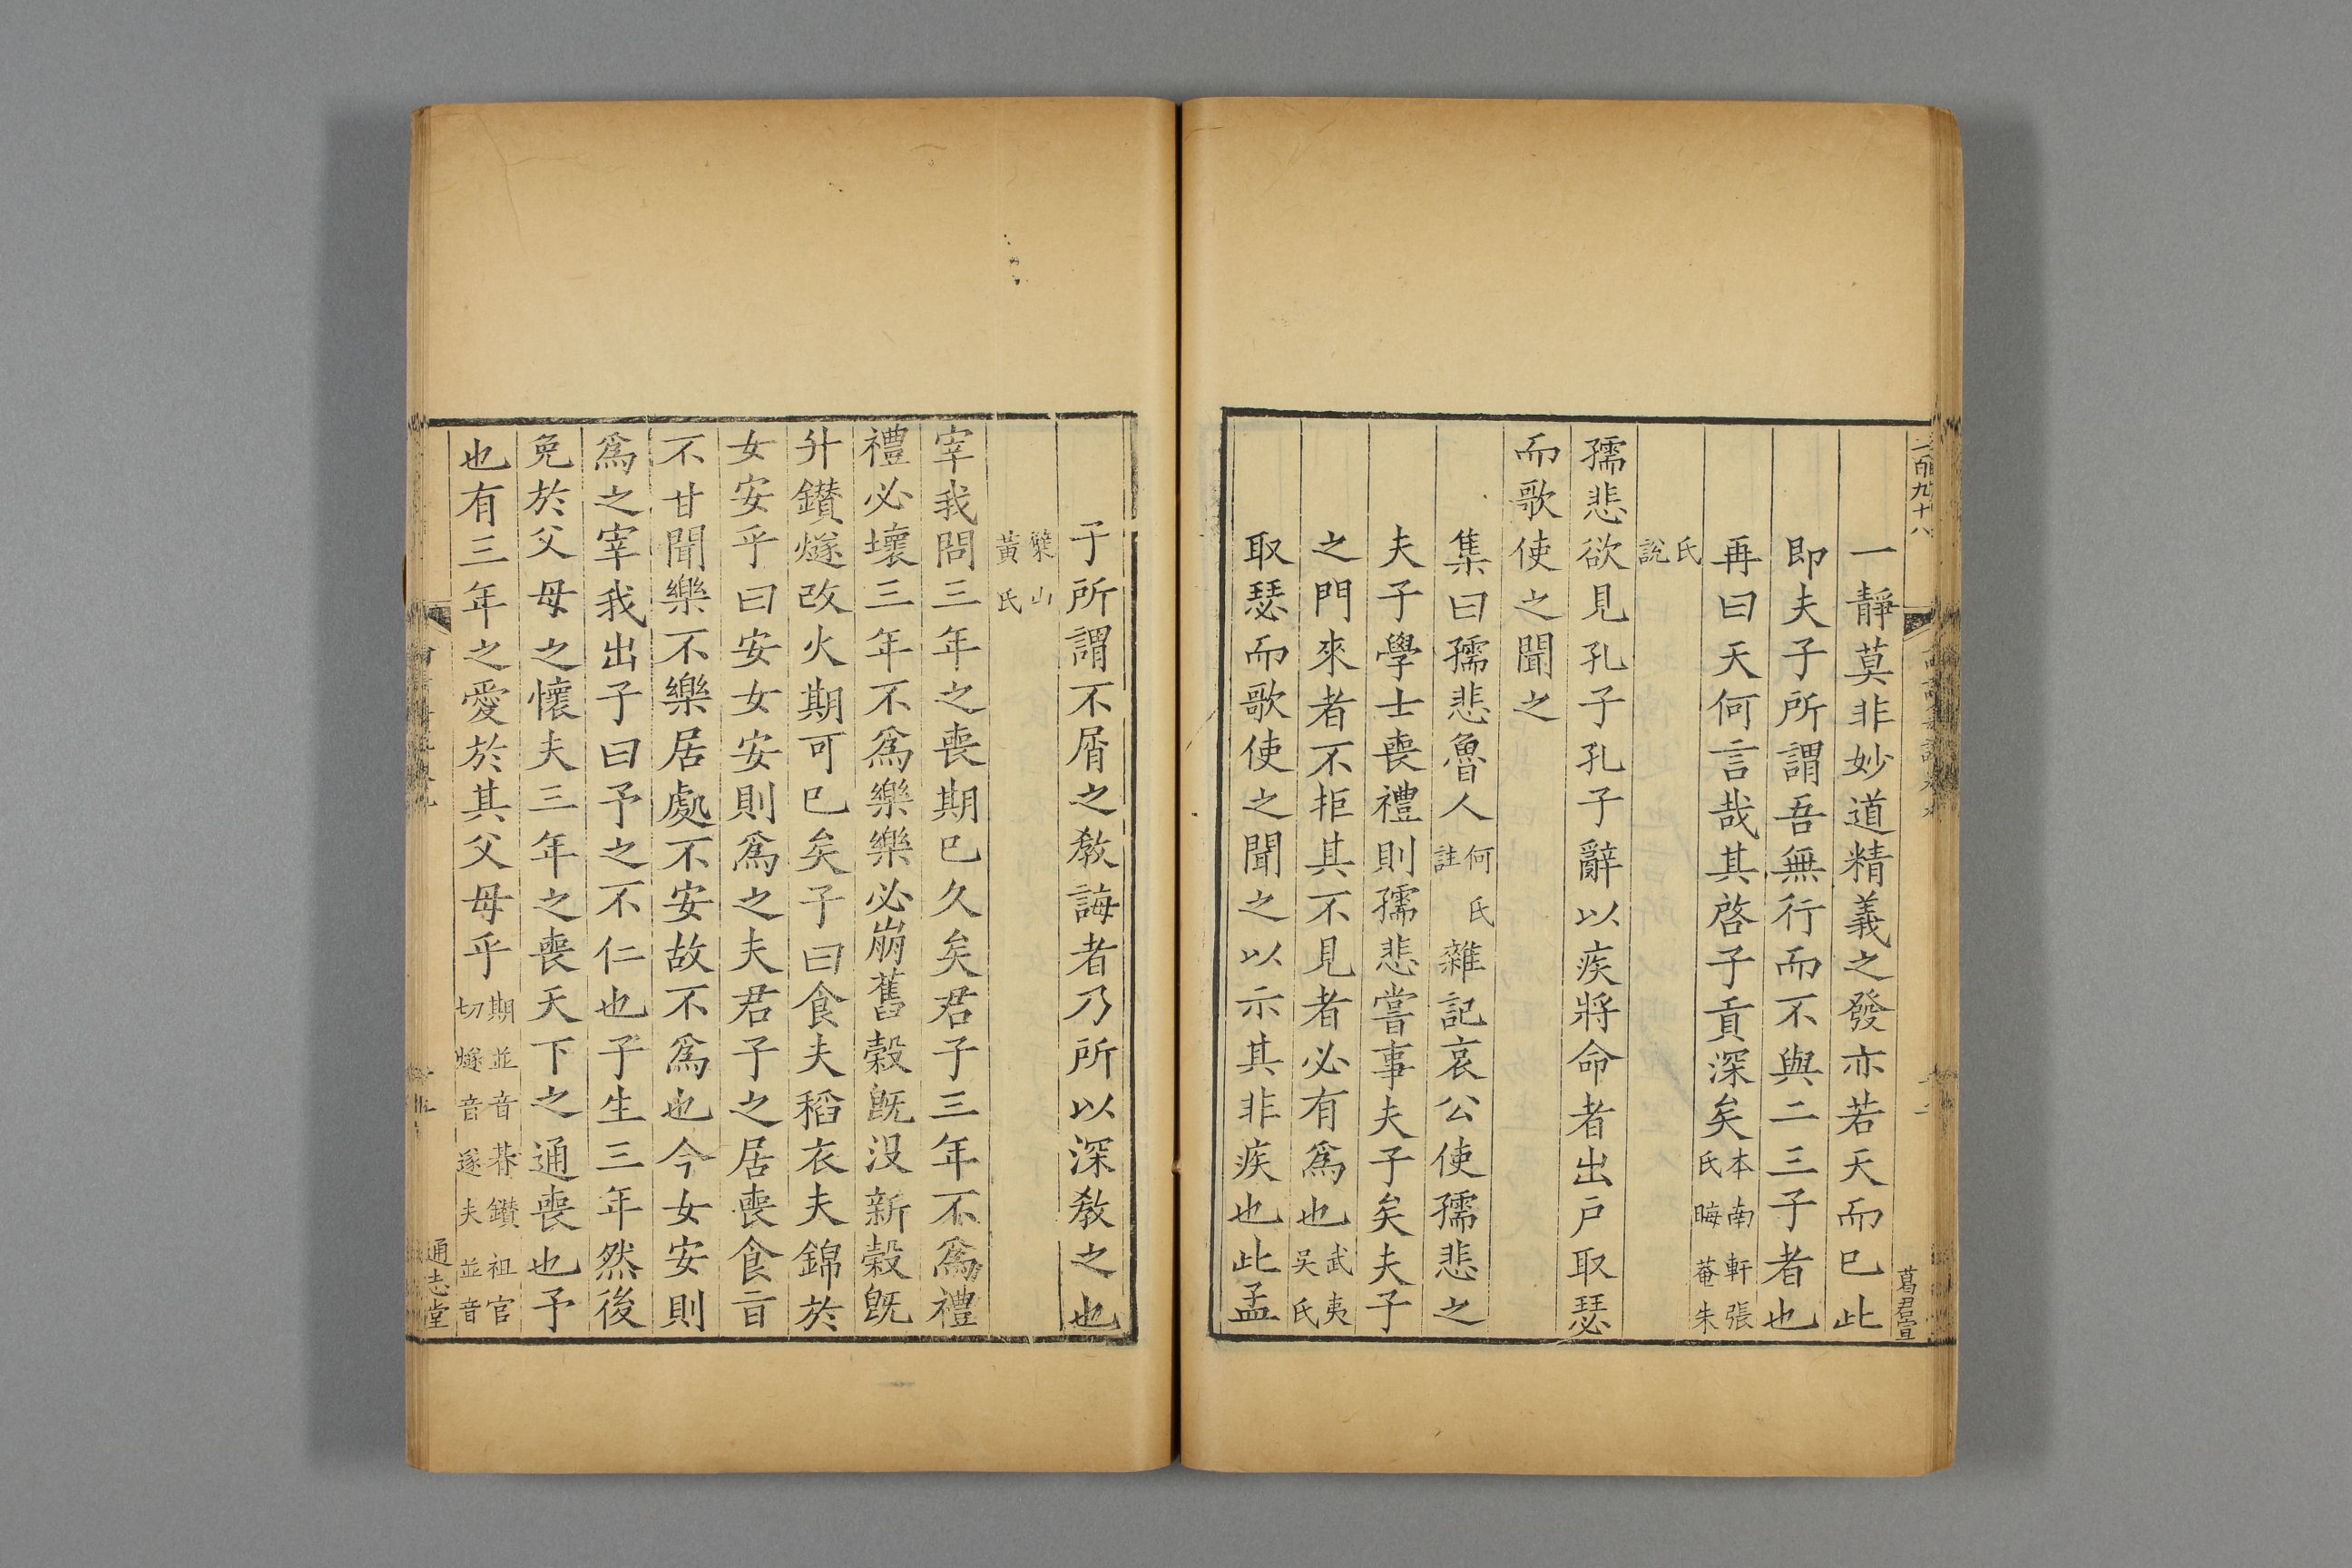 二百九十八
葛君宣
一靜莫非妙道精義之發亦若天而已此
即夫子所謂吾無行而不與二三子者也
再曰天何言哉其啓子貢深矣本南軒張氏晦菴朱
氏說
孺悲欲見孔子孔子辭以疾將命者出戶取瑟
而歌使之聞之
集曰孺悲魯人何氏註雜記哀公使孺悲之
夫子學士喪禮則孺悲嘗事夫子矣夫子
之門來者不拒其不見者必有爲也武夷吳氏
取瑟而歌使之聞之以示其非疾也此孟
子所謂不屑之敎誨者乃所以深敎之也
檗山黃氏
宰我問三年之喪期已久矣君子三年不爲禮
禮必壞三年不爲樂樂必崩舊穀旣沒新穀旣
升鑚燧改火期可已矣子曰食夫稻衣夫錦於
女安乎曰安女安則爲之夫君子之居喪食旨
不甘聞樂不樂居處不安故不爲也今女安則
爲之宰我出子曰予之不仁也子生三年然後
免於父母之懷夫三年之喪天下之通喪也予
也有三年之愛於其父母乎期並音朞鑚祖官切燧音遂夫並音
通志堂